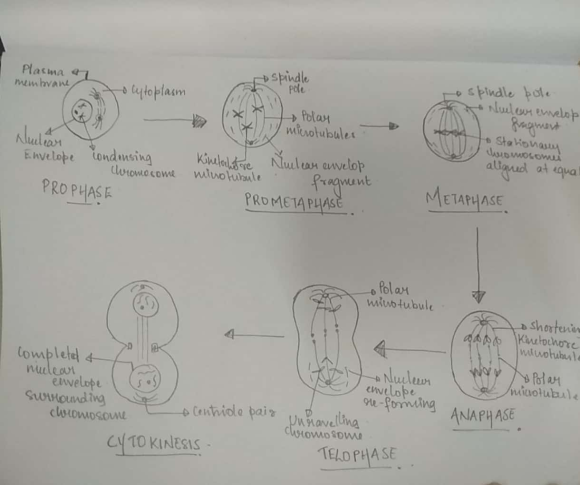 Plasma
membrane
Cytoplasm
Nuclear
Envelope
Condensing
Chromosome
PROPHASE
Spindle
pole
Polar
microtubules
Kinetochore
microtubule
Nuclear envelop
fragment
PROMETAPHASE.
Spindle pole
Nuclear envelop
fragment
Stationary
chromosome
aligned at equa
METAPHASE.
Shortening
Kinetochore
microtubule
Polar
microtubule
ANAPHASE.
Polar
microtubule
Nuclear
envelope
re-forming
Unravelling
chromosome
TELOPHASE.
Completed
nuclear
envelope
surrounding
chromosome
Centriole pair
CYTOKINESIS.